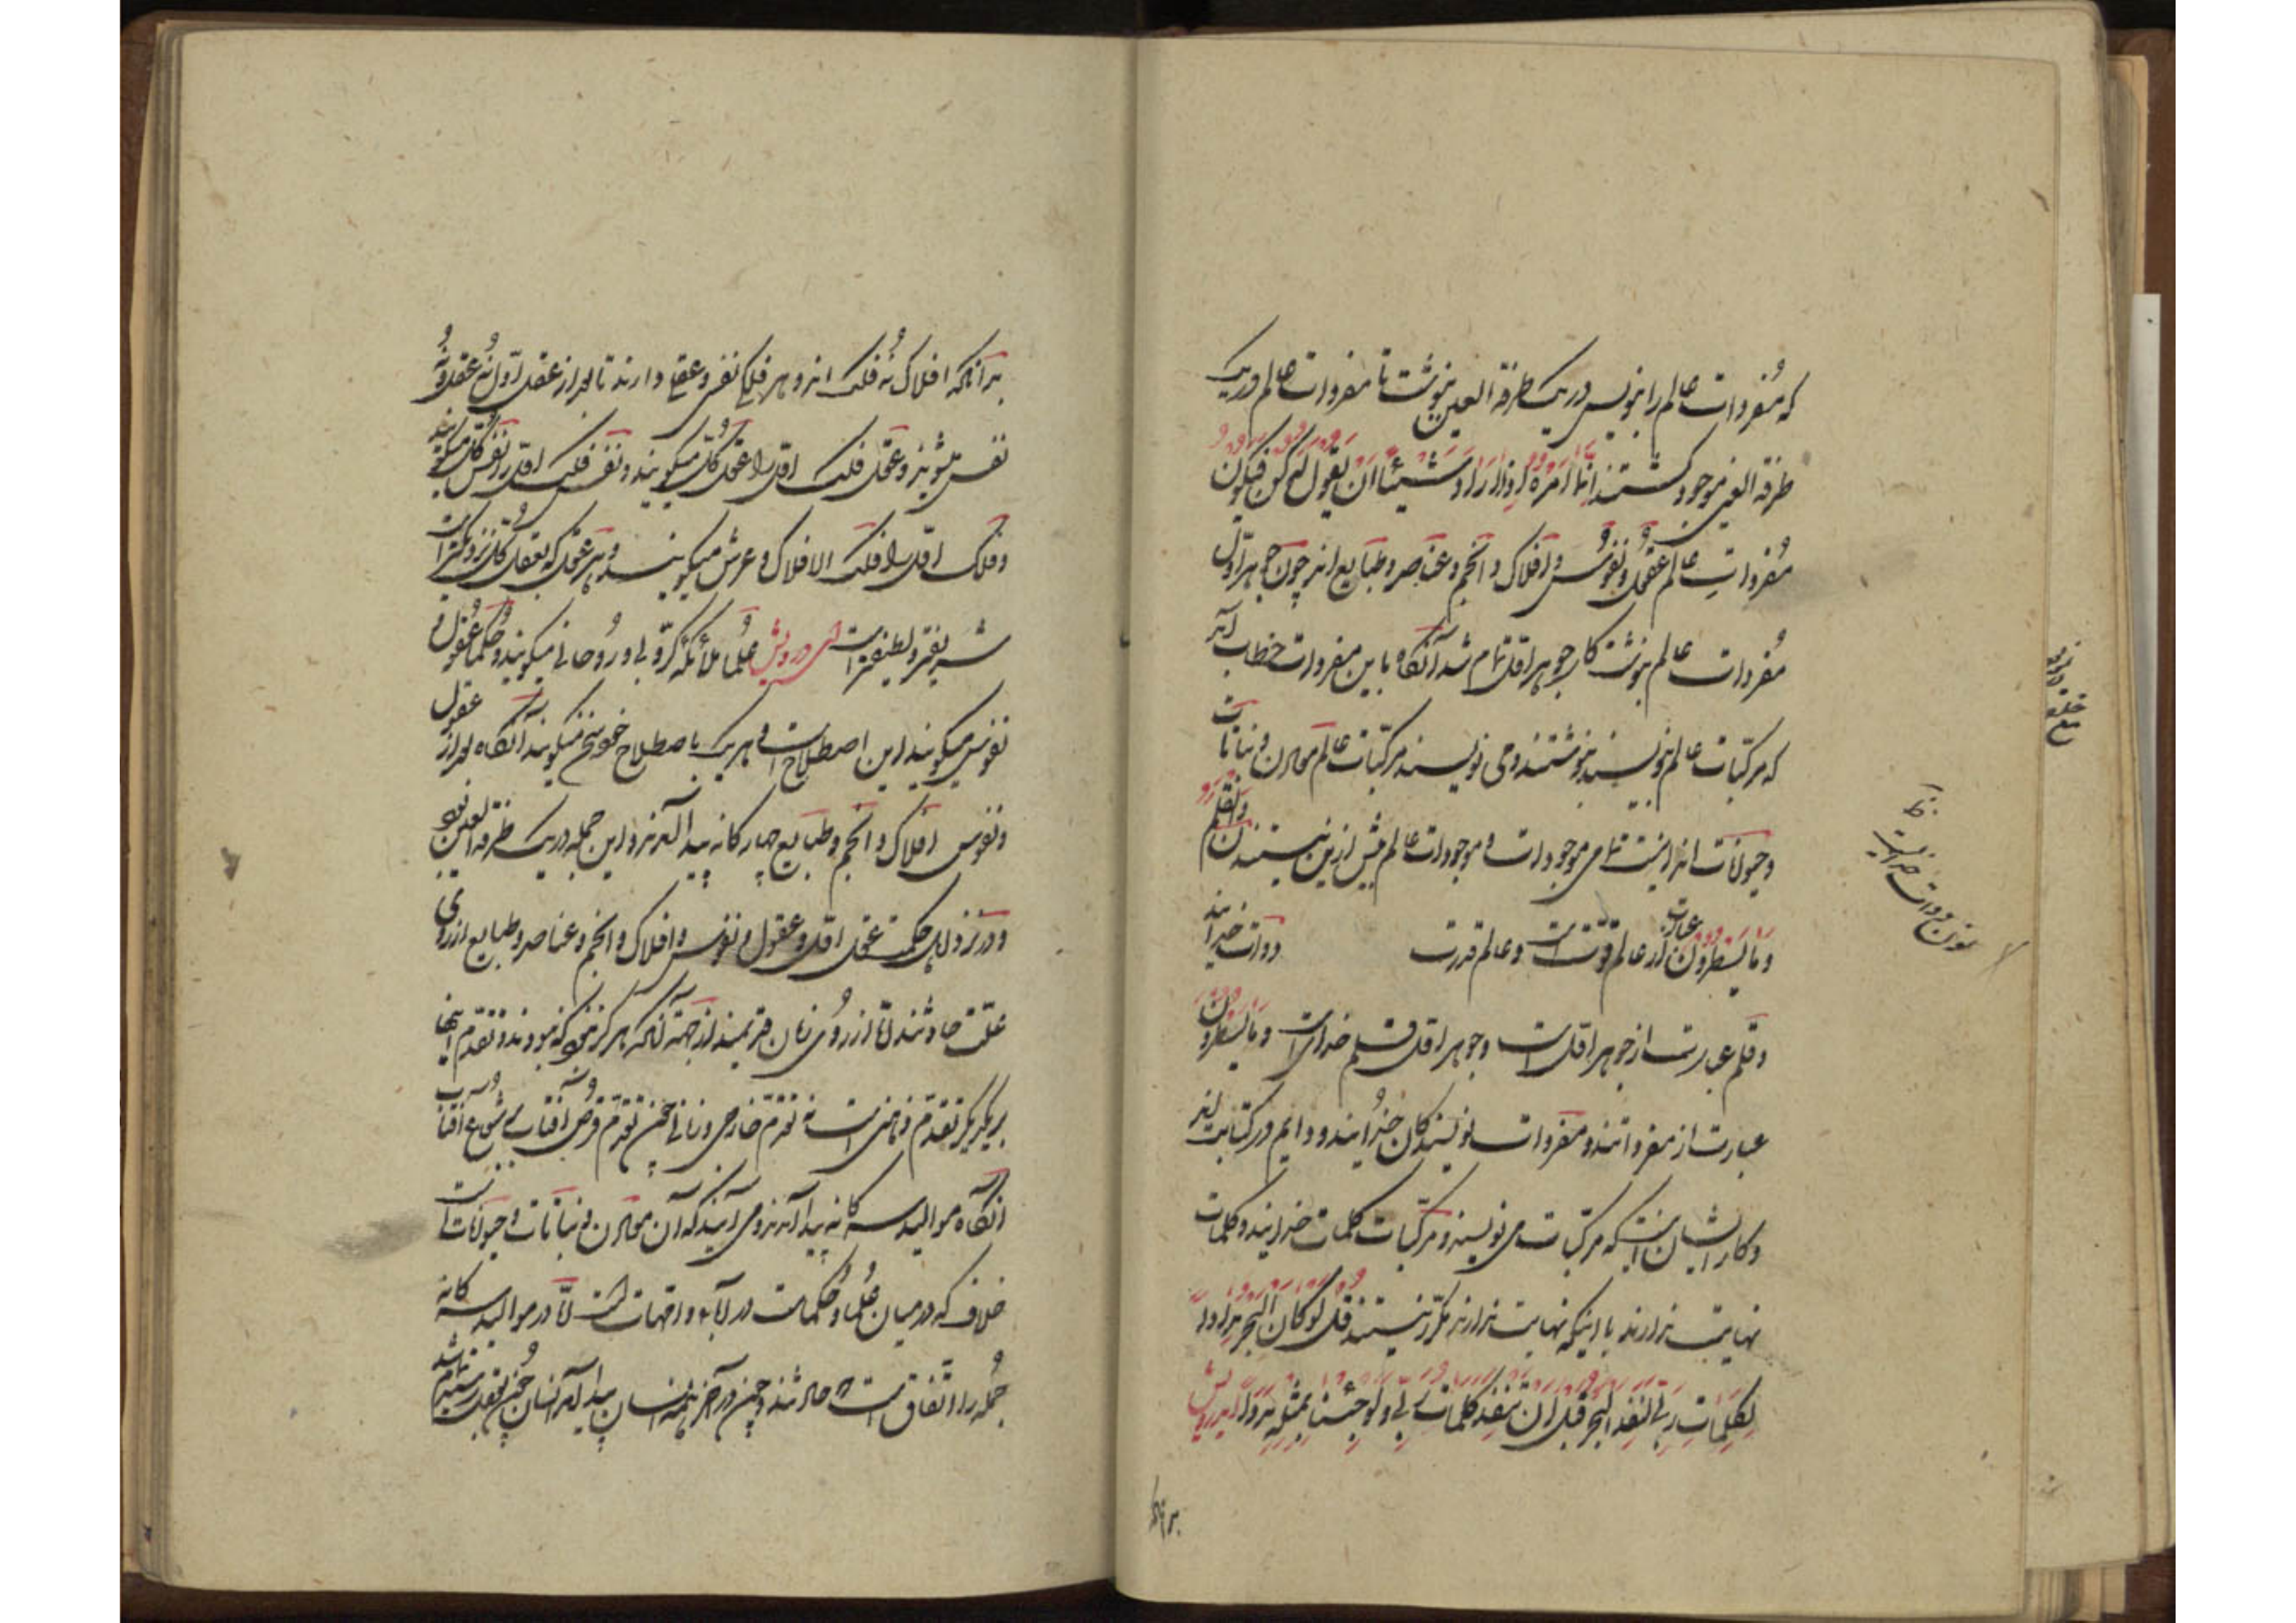 که مُفردات عالم را بنویس در یک طرفة العین بنوشت تا مفردات عالم در یک
طرفة العین موجود گشتند اِنّما اَمرُهُ اِذا اَرادَ شیئاً اَن یَقولَ لَهُ کُن فَیکون
مُفردات عالم عقول و نفوس و افلاک و انجم و عناصر و طبایع اند چون جوهر اوّل
مُفردات عالم بنوشت کار جوهر اوّل تمام شد آنگاه باین مفردات خطاب آمد
که مرکّبات عالم بنویسید بنوشتند و می نویسند مرکّبات عالم معادن و نباتات
و حیوانات اند اینست تمامی موجودات و موجودات عالم بیش ازین نیستند ن والقلم
و ما یَسطُرون ن عبارت از عالم قوّتست و عالم قدرت دوات خدایند
و قلم عبارت از جوهر اوّلست و جوهر اوّل قلم خدایست و ما یسطرون
عبارت از مفرداتند و مفردات نویسندگان خُدایند و دایم در کتابت اند
و کار ایشان اینست که مرکّبات می نویسند و مرکّبات کلمات خدایند و کلمات
نهایت ندارند با اینکه نهایت ندارند مکرّر نیستند قل لَو کانَ البَحرُ مِداداً
لِکلماتِ ربّی لنَفِدَ البَحرُ قبلَ اَن تنفدَ کلماتُ ربّی و لَو جئنا بِمِثلِه مَدداً ای درویش
بدانکه
نون دوات خدایست
بدانکه افلاک نُه فلک اند و هر فلکی نفسی و عقلی دارند تا بعد از عقل اوّل نُه عقل و نُه
نفس میشوند و عقل فلک اوّل را عقل کُلّ میگویند و نفس فلک اوّل را نفس کُلّ میگویند
و فلک اوّل را فلک الافلاک و عرش میگویند و هر عقل که بعقل کُلّ نزدیکتر است
شریفتر و لطیفتر است ای درویش عُلما ملائکه کرّوبی و رُوحانی میگویند و حُکما عُقول و
نفوس میگویند این اصطلاح است و هر یک باصطلاح خود سخن میگویند آنگاه بعد از عقول
و نفوس افلاک و انجم و طبایع چهارگانه پیدا آمدند و این جمله در یک طرفة العین بود
و در نزد اهل حکمت عقل اوّل و عقول و نفوس و افلاک و انجم و عناصر و طبایع از روی
علّت حادثند امّا از رُوی زمان قدیمند از جهت آنکه هرگز نبود که نبودند و تقدّم اینها
بر یکدیگر تقدّم ذاتی است نه تقدّم خارجی و زمانی چون تقدّم قُرص آفتاب بر شعاع آفتاب
آنگاه موالید سه گانه پیدا آمدند و می آیند که آن معادن و نباتات و حیوانات است
خلاف که در میان عُلما و حُکماست در آباء و امّهات است امّا در موالید سه گانه
جُمله را اتّفاق است که حادثند و چون در آخر همه انسان پیدا آمد انسان چون بعقل رسید تمام شد